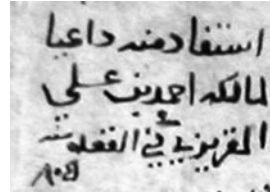 استفاد منه داعيا
لمالكه احمد بن علي
المقريزي في القعدة سنة